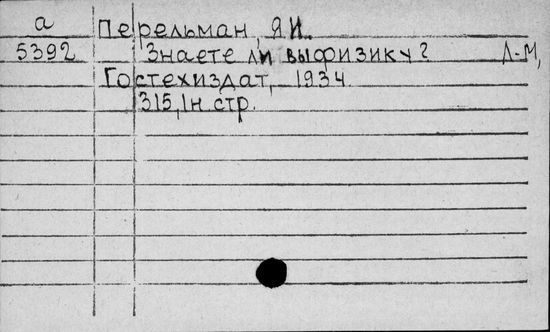 а Перельман, Я.И.
5392 Знаете ли вы физику? Л-М,
Гостехиздат, 1934.
315, 1н. стр.